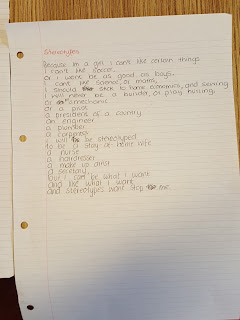 Stereotypes
Because Im a girl i can't like certain things
I can't like soccer
or i wont be as good as boys.
I can't like science, or maths,
I should stick to home economics, and sewing
I will never be a builder, or play hurling.
or a mechanic
or a pilot
a president of a country
an engineer
a plumber
a carpenter
I will be stereotyped
to be a stay at home wife
a nurse
a hairdresser
a make up artist
a secretary,
but I can be what I want
and like what I want
and stereotypes wont stop me.